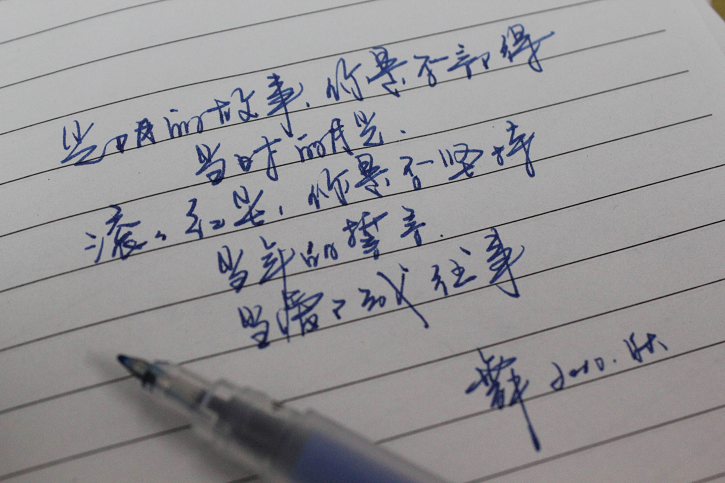 当时的故事,你是否记得
当时的月光.
滚滚红尘,你是否坚持
当年的誓言.
当爱已成往事
2010.秋